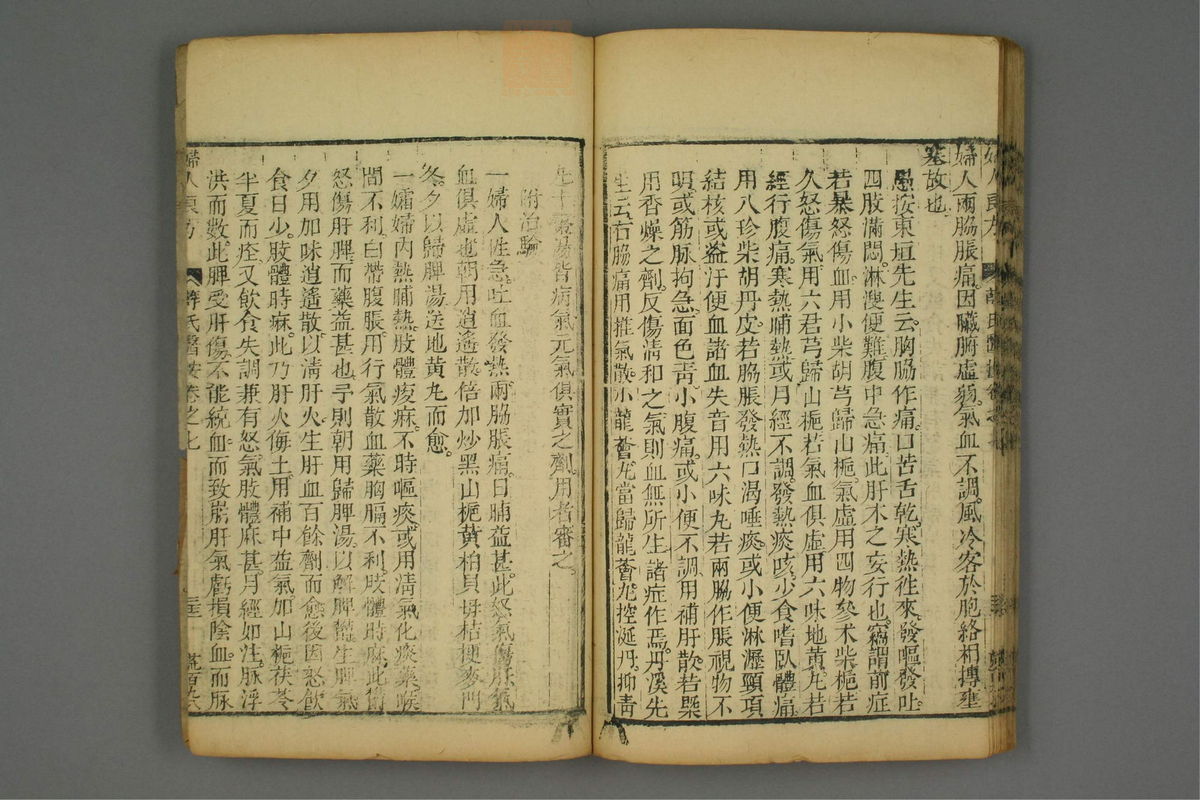 婦人良方
薛氏醫按卷之七
婦人兩脇脹痛因臟腑虛弱氣血不調風冷客於胞絡相搏壅
塞故也
愚按東垣先生云胸脇作痛口苦舌乾寒熱徃來發嘔發吐
四肢滿悶淋溲便難腹中急痛此肝木之妄行也竊謂前症
若暴怒傷血用小柴胡芎歸山梔氣虛用四物參术柴梔若
久怒傷氣用六君芎歸山梔若氣血俱虛用六味地黃丸若
經行腹痛寒熱晡熱或月經不調發熱痰咳少食嗜臥體痛
用八珍柴胡丹皮若脇脹發熱口渴唾痰或小便淋瀝頸項
結核或盜汗便血諸血失音用六味丸若兩脇作脹視物不
明或筋脉拘急面色靑小腹痛或小便不調用補肝散若槩
用香燥之劑反傷淸和之氣則血無所生諸症作焉丹溪先
生云右脇痛用推氣散小龍薈丸當歸龍薈丸控涎丹抑靑
丸十棗湯皆病氣元氣俱實之劑用者審之
附治驗
一婦人性急吐血發熱兩脇脹痛日晡益甚此怒氣傷肝氣
血俱虛也朝用逍遙散倍加炒黑山梔黃柏貝母桔梗麥門
冬夕以歸脾湯送地黃丸而愈
一孀婦內熱晡熱肢體痠麻不時嘔痰或用淸氣化痰藥喉
間不利白帶腹脹用行氣散血藥胸膈不利肢體時麻此鬱
怒傷肝脾而藥益甚也予則朝用歸脾湯以解脾鬱生脾氣
夕用加味逍遙散以淸肝火生肝血百餘劑而愈後因怒飮
食日少肢體時麻此乃肝火侮土用補中益氣加山梔茯苓
半夏而痊又飮食失調兼有怒氣肢體麻甚月經如注脉浮
洪而數此脾受肝傷不能統血而致崩肝氣虧損陰血而脉
婦人良方
薛氏醫按卷之七